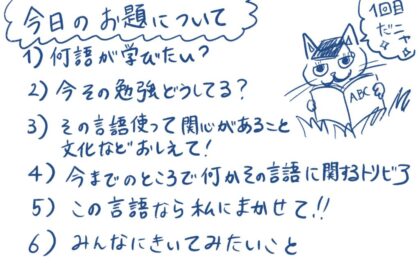 今日のお題について
1) 何語が学びたい?
2) 今その勉強どうしてる?
3) その言語使って関心があること
文化などおしえて!
4) 今までのところで何かその言語に関するトリビア
5) この言語なら私にまかせて!!
6) みんなにきいてみたいこと
1回目
だニャ
ABC